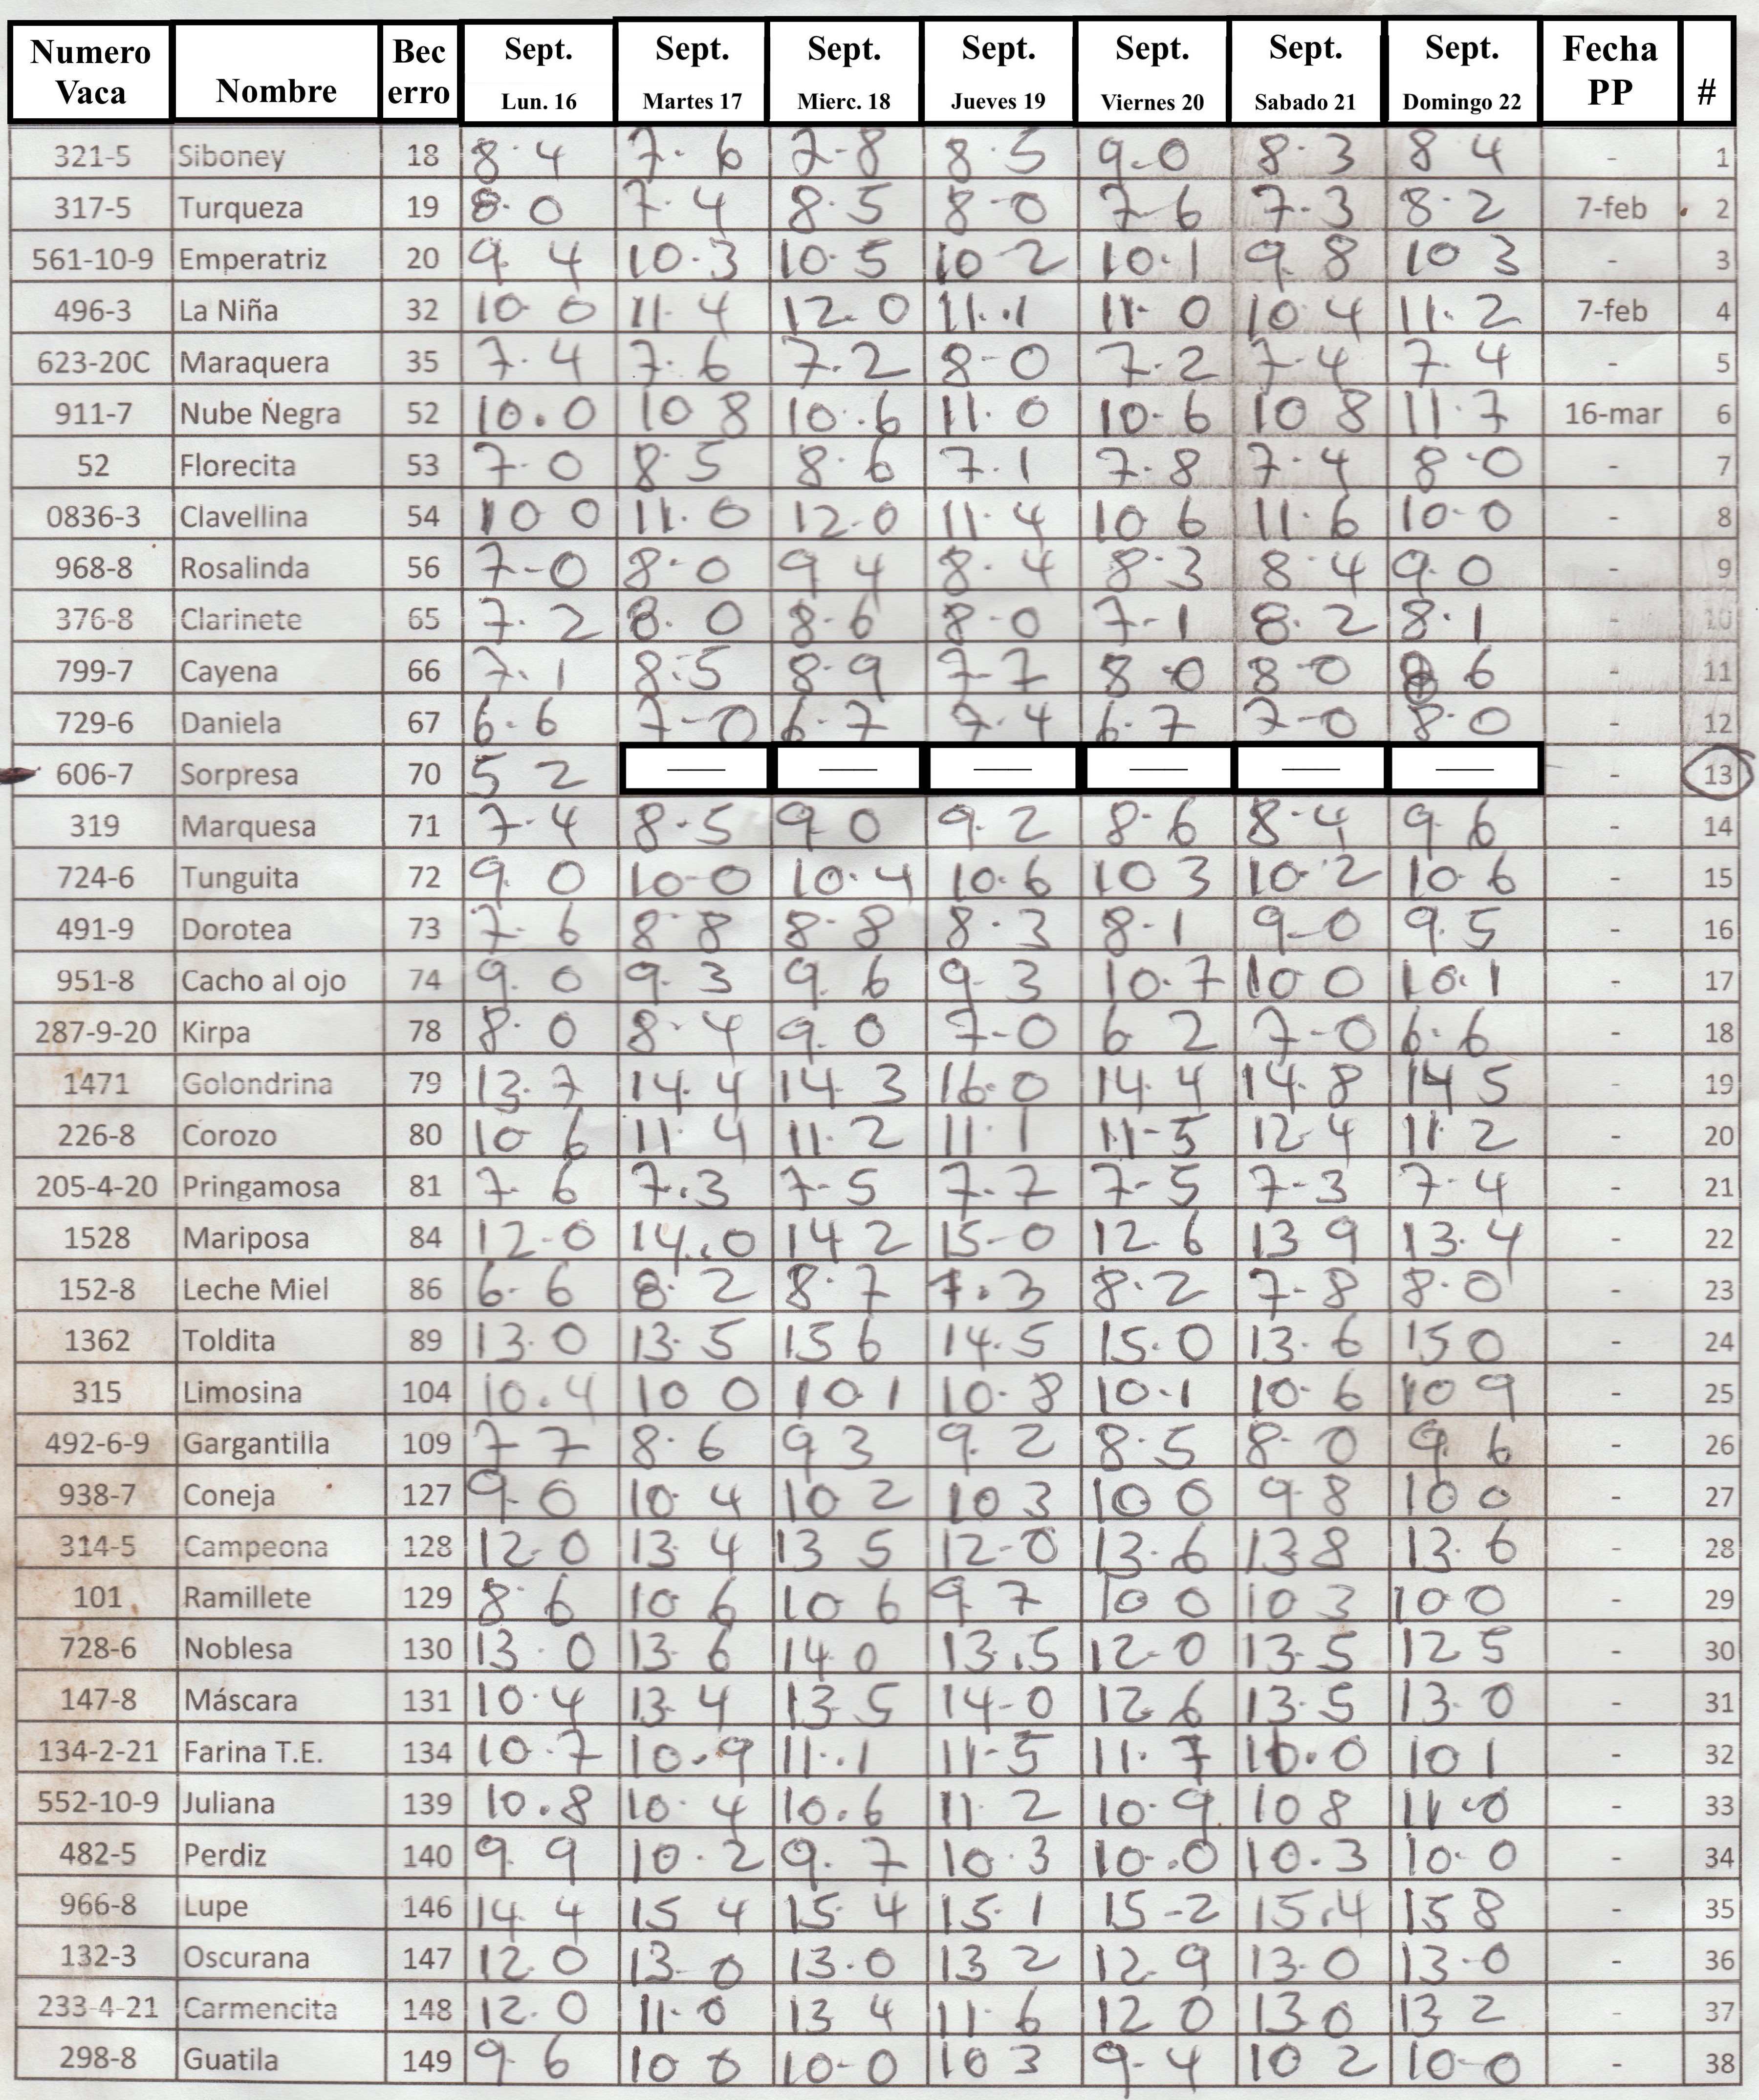 Numero Vaca Nombre Bec erro Sept. Lun. 16 Sept. Martes 17 Sept. Mierc. 18 Sept. Jueves 19 Sept. Viernes 20 Sept. Sabado 21 Sept. Domingo 22 Fecha PP #
321-5 Siboney 18 8.4 7.6 7-8 8.5 9.0 8.3 8 4 - 1
317-5 Turqueza 19 8.0 7.4 8.5 8-0 7-6 7.3 8.2 7-feb 2
561-10-9 Emperatriz 20 9.4 10.3 10.5 10 2 10.1 9.8 10 3 - 3
496-3 La Niña 32 10.0 11.4 12.0 11.1 11.0 10 4 11.2 7-feb 4
623-20C Maraquera 35 7.4 7.6 7.2 8-0 7.2 7.4 7.4 - 5
911-7 Nube Negra 52 10.0 10 8 10.6 11.0 10.6 10 8 11.7 16-mar 6
52 Florecita 53 7.0 8.5 8.6 7.1 7.8 7.4 8.0 - 7
0836-3 Clavellina 54 10 0 11.0 12.0 11.4 10 6 11.6 10.0 - 8
968-8 Rosalinda 56 7-0 8.0 9 4 8.4 8.3 8.4 9.0 - 9
376-8 Clarinete 65 7.2 8.0 8-6 8-0 7-1 8.2 8.1 - 10
799-7 Cayena 66 7.1 8.5 8.9 7-7 8.0 8-0 8 6 - 11
729-6 Daniela 67 6.6 7-0 6.7 7.4 6.7 7-0 8.0 - 12
606-7 Sorpresa 70 5 2 — — — — — — - 13
319 Marquesa 71 7.4 8.5 9 0 9.2 8.6 8.4 9.6 - 14
724-6 Tunguita 72 9.0 10-0 10.4 10.6 10 3 10.2 10.6 - 15
491-9 Dorotea 73 7.6 8.8 8.8 8.3 8-1 9-0 9.5 - 16
951-8 Cacho al ojo 74 9.0 9.3 9.6 9.3 10.7 10 0 10.1 - 17
287-9-20 Kirpa 78 8.0 8.4 9.0 7-0 6 2 7-0 6.6 - 18
1471 Golondrina 79 13.7 14.4 14.3 16.0 14.4 14.8 14 5 - 19
226-8 Corozo 80 10 6 11.4 11.2 11.1 11-5 12.4 11.2 - 20
205-4-20 Pringamosa 81 7.6 7.3 7-5 7.7 7-5 7-3 7.4 - 21
1528 Mariposa 84 12.0 14.0 14 2 15-0 12.6 13 9 13.4 - 22
152-8 Leche Miel 86 6.6 8.2 8.7 7.3 8.2 7-8 8.0 - 23
1362 Toldita 89 13.0 13.5 15 6 14.5 15.0 13.6 15 0 - 24
315 Limosina 104 10.4 10 0 10 1 10.8 10.1 10.6 10 9 - 25
492-6-9 Gargantilla 109 7 7 8.6 9 3 9.2 8.5 8.0 9.6 - 26
938-7 Coneja 127 9.0 10.4 10 2 10 3 10 0 9.8 10 0 - 27
314-5 Campeona 128 12.0 13 4 13 5 12-0 13.6 13 8 13.6 - 28
101 Ramillete 129 8.6 10 6 10 6 9 7 10 0 10 3 10 0 - 29
728-6 Noblesa 130 13.0 13.6 14 0 13.5 12.0 13.5 12 5 - 30
147-8 Máscara 131 10.4 13.4 13.5 14-0 12.6 13.5 13.0 - 31
134-2-21 Farina T.E. 134 10.7 10.9 11.1 11-5 11.7 10.0 10 1 - 32
552-10-9 Juliana 139 10.8 10.4 10.6 11.2 10.9 10 8 11.0 - 33
482-5 Perdiz 140 9.9 10.2 9.7 10.3 10.0 10.3 10.0 - 34
966-8 Lupe 146 14.4 15 4 15.4 15.1 15-2 15.4 15 8 - 35
132-3 Oscurana 147 12.0 13.0 13.0 13 2 12.9 13.0 13.0 - 36
233-4-21 Carmencita 148 12.0 11.0 13 4 11.6 12 0 13 0 13 2 - 37
298-8 Guatila 149 9.6 10 0 10-0 10 3 9-4 10 2 10-0 - 38